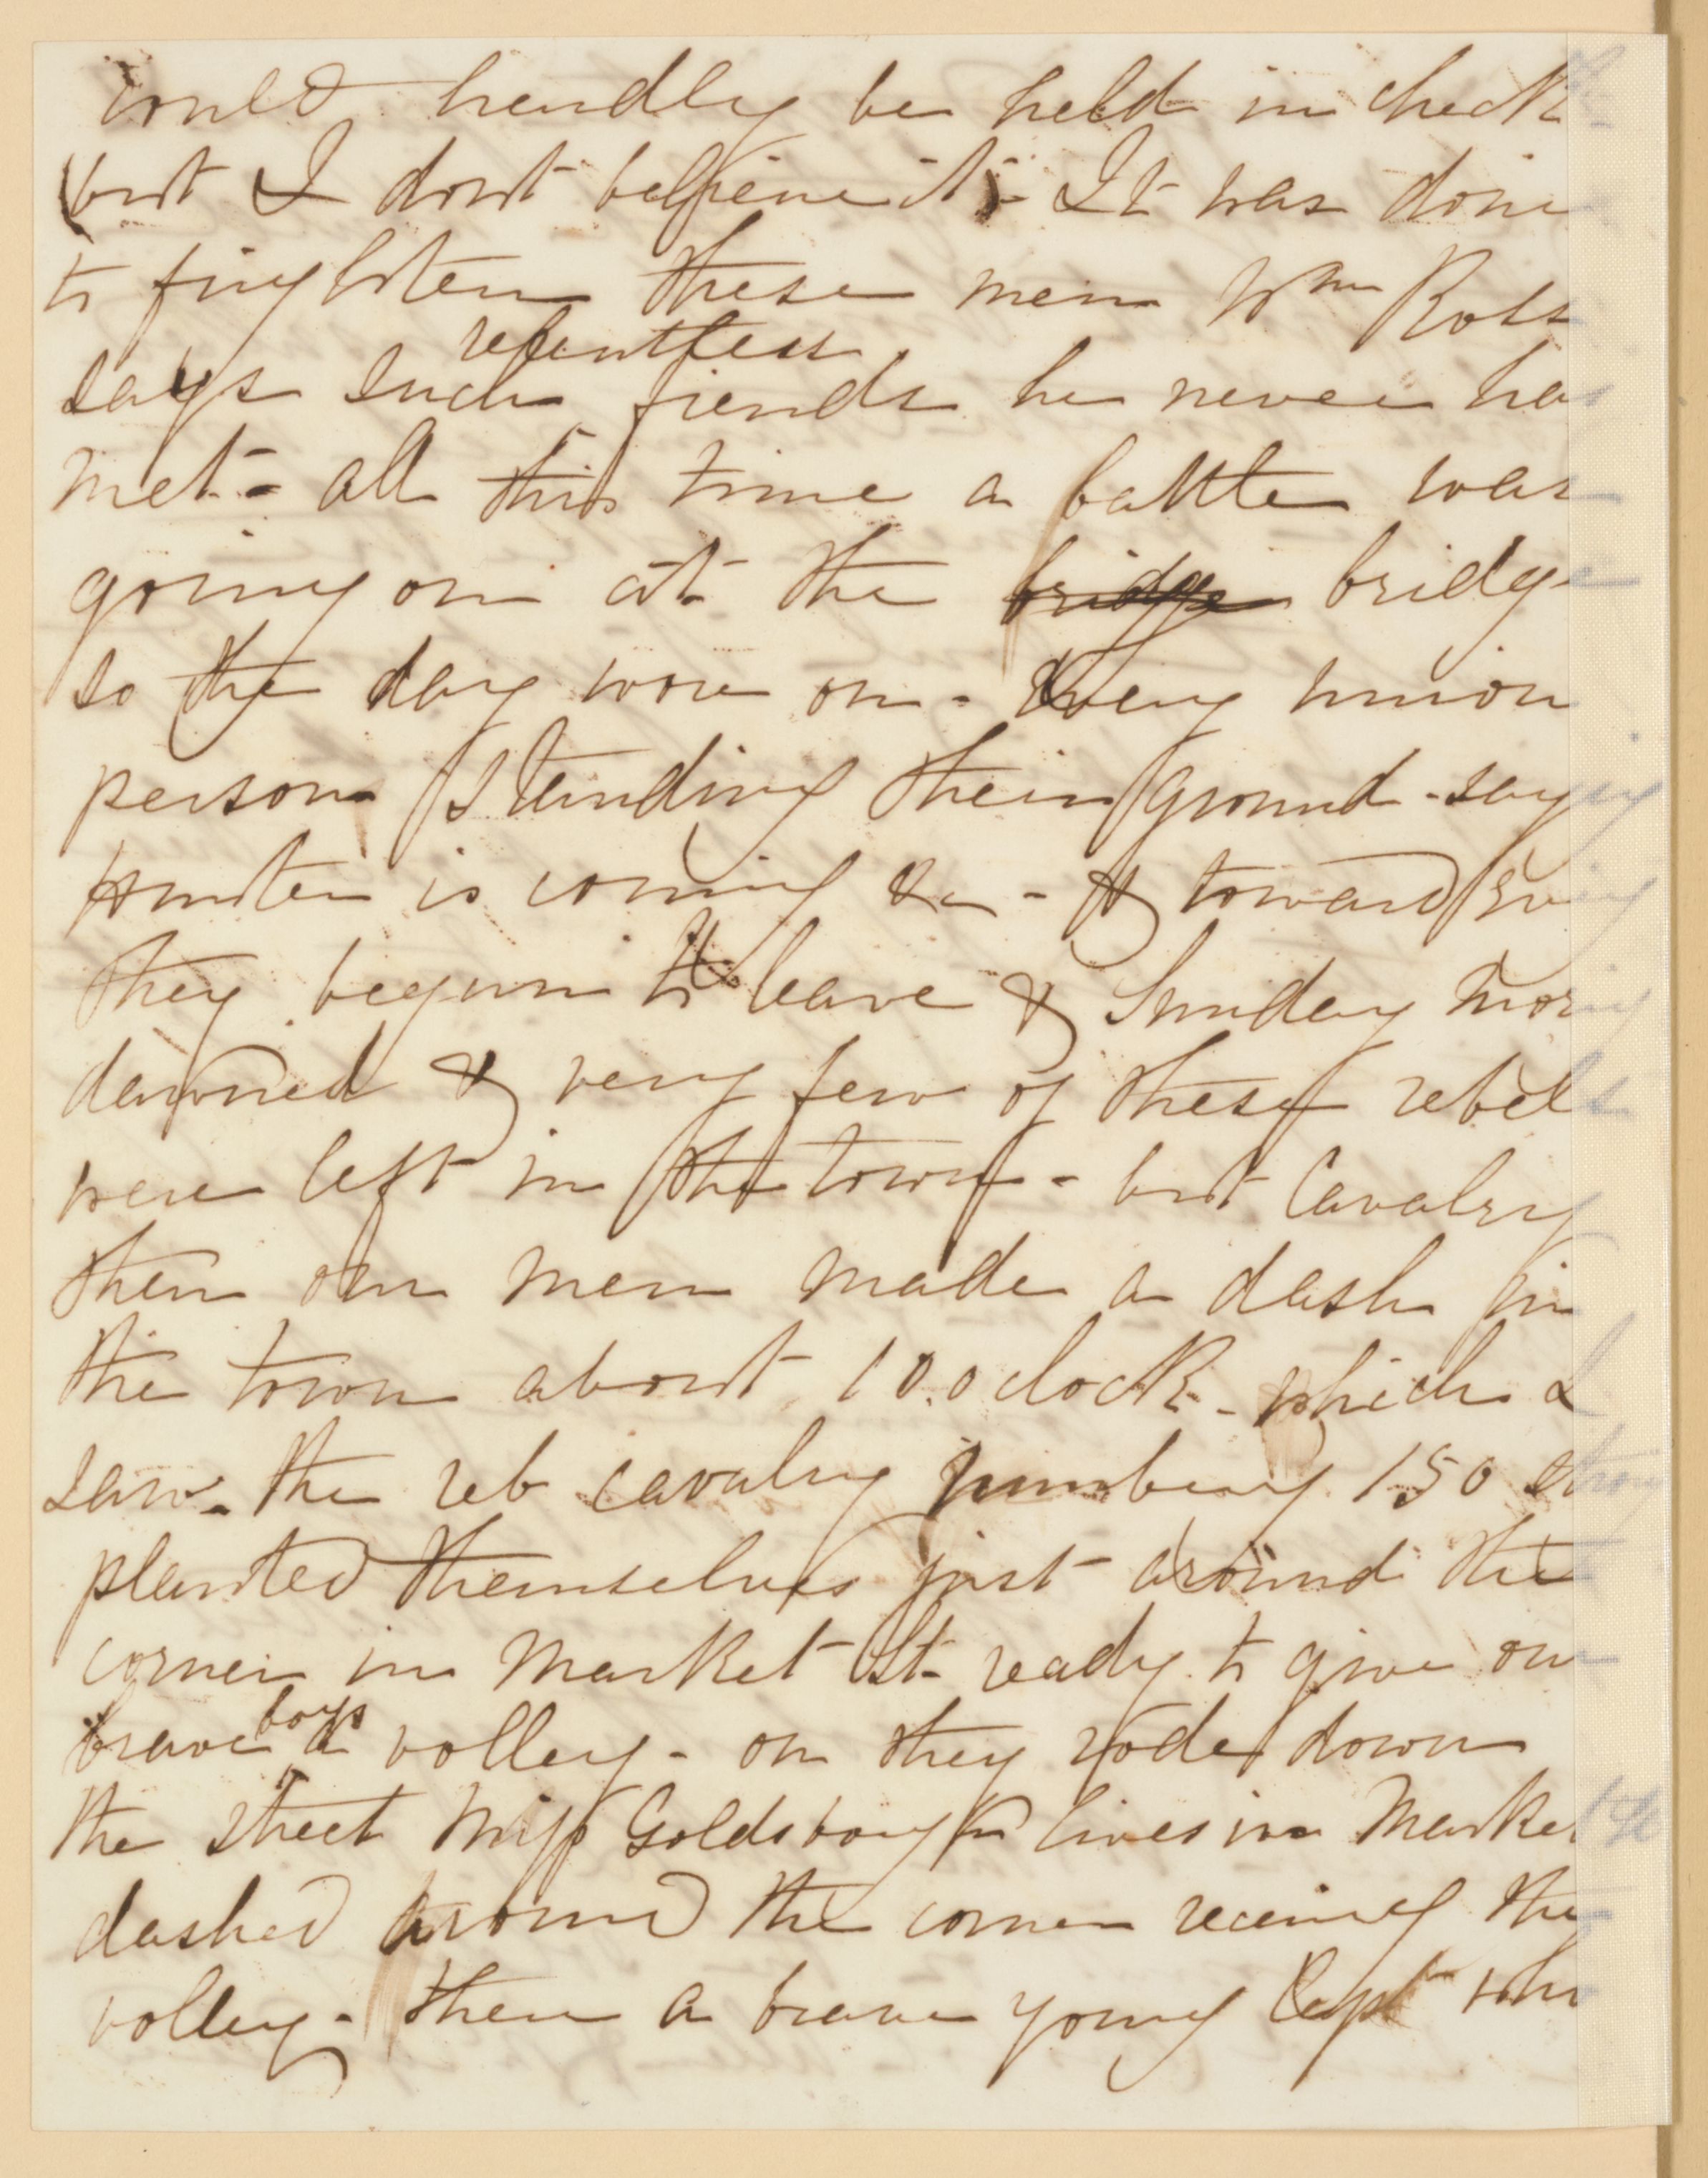 could hardly be held in check
(but I dont believe it) - It was done
to frighten these men Wm Ross
says such relentless fiends he never has
met - all this time a battle was
going on at the bridge bridge
so the day wore on - Every union
person standing their ground - saying
Hunter is coming &c - & toward Eving
they begun to leave & Sunday morng
dawned & very few of these rebels
were left in the town - but Cavalry
then our men made a dash in
the town about 10.oclock - which I
saw. the reb cavalry numbering 150 strong
planted themselves just around the
corner in Market St ready to give our
brave boys a volley - on they rode down
the street Miss Goldsborough lives in Market St
dashed around the corner receiving the
volley - then a brave young Capt who